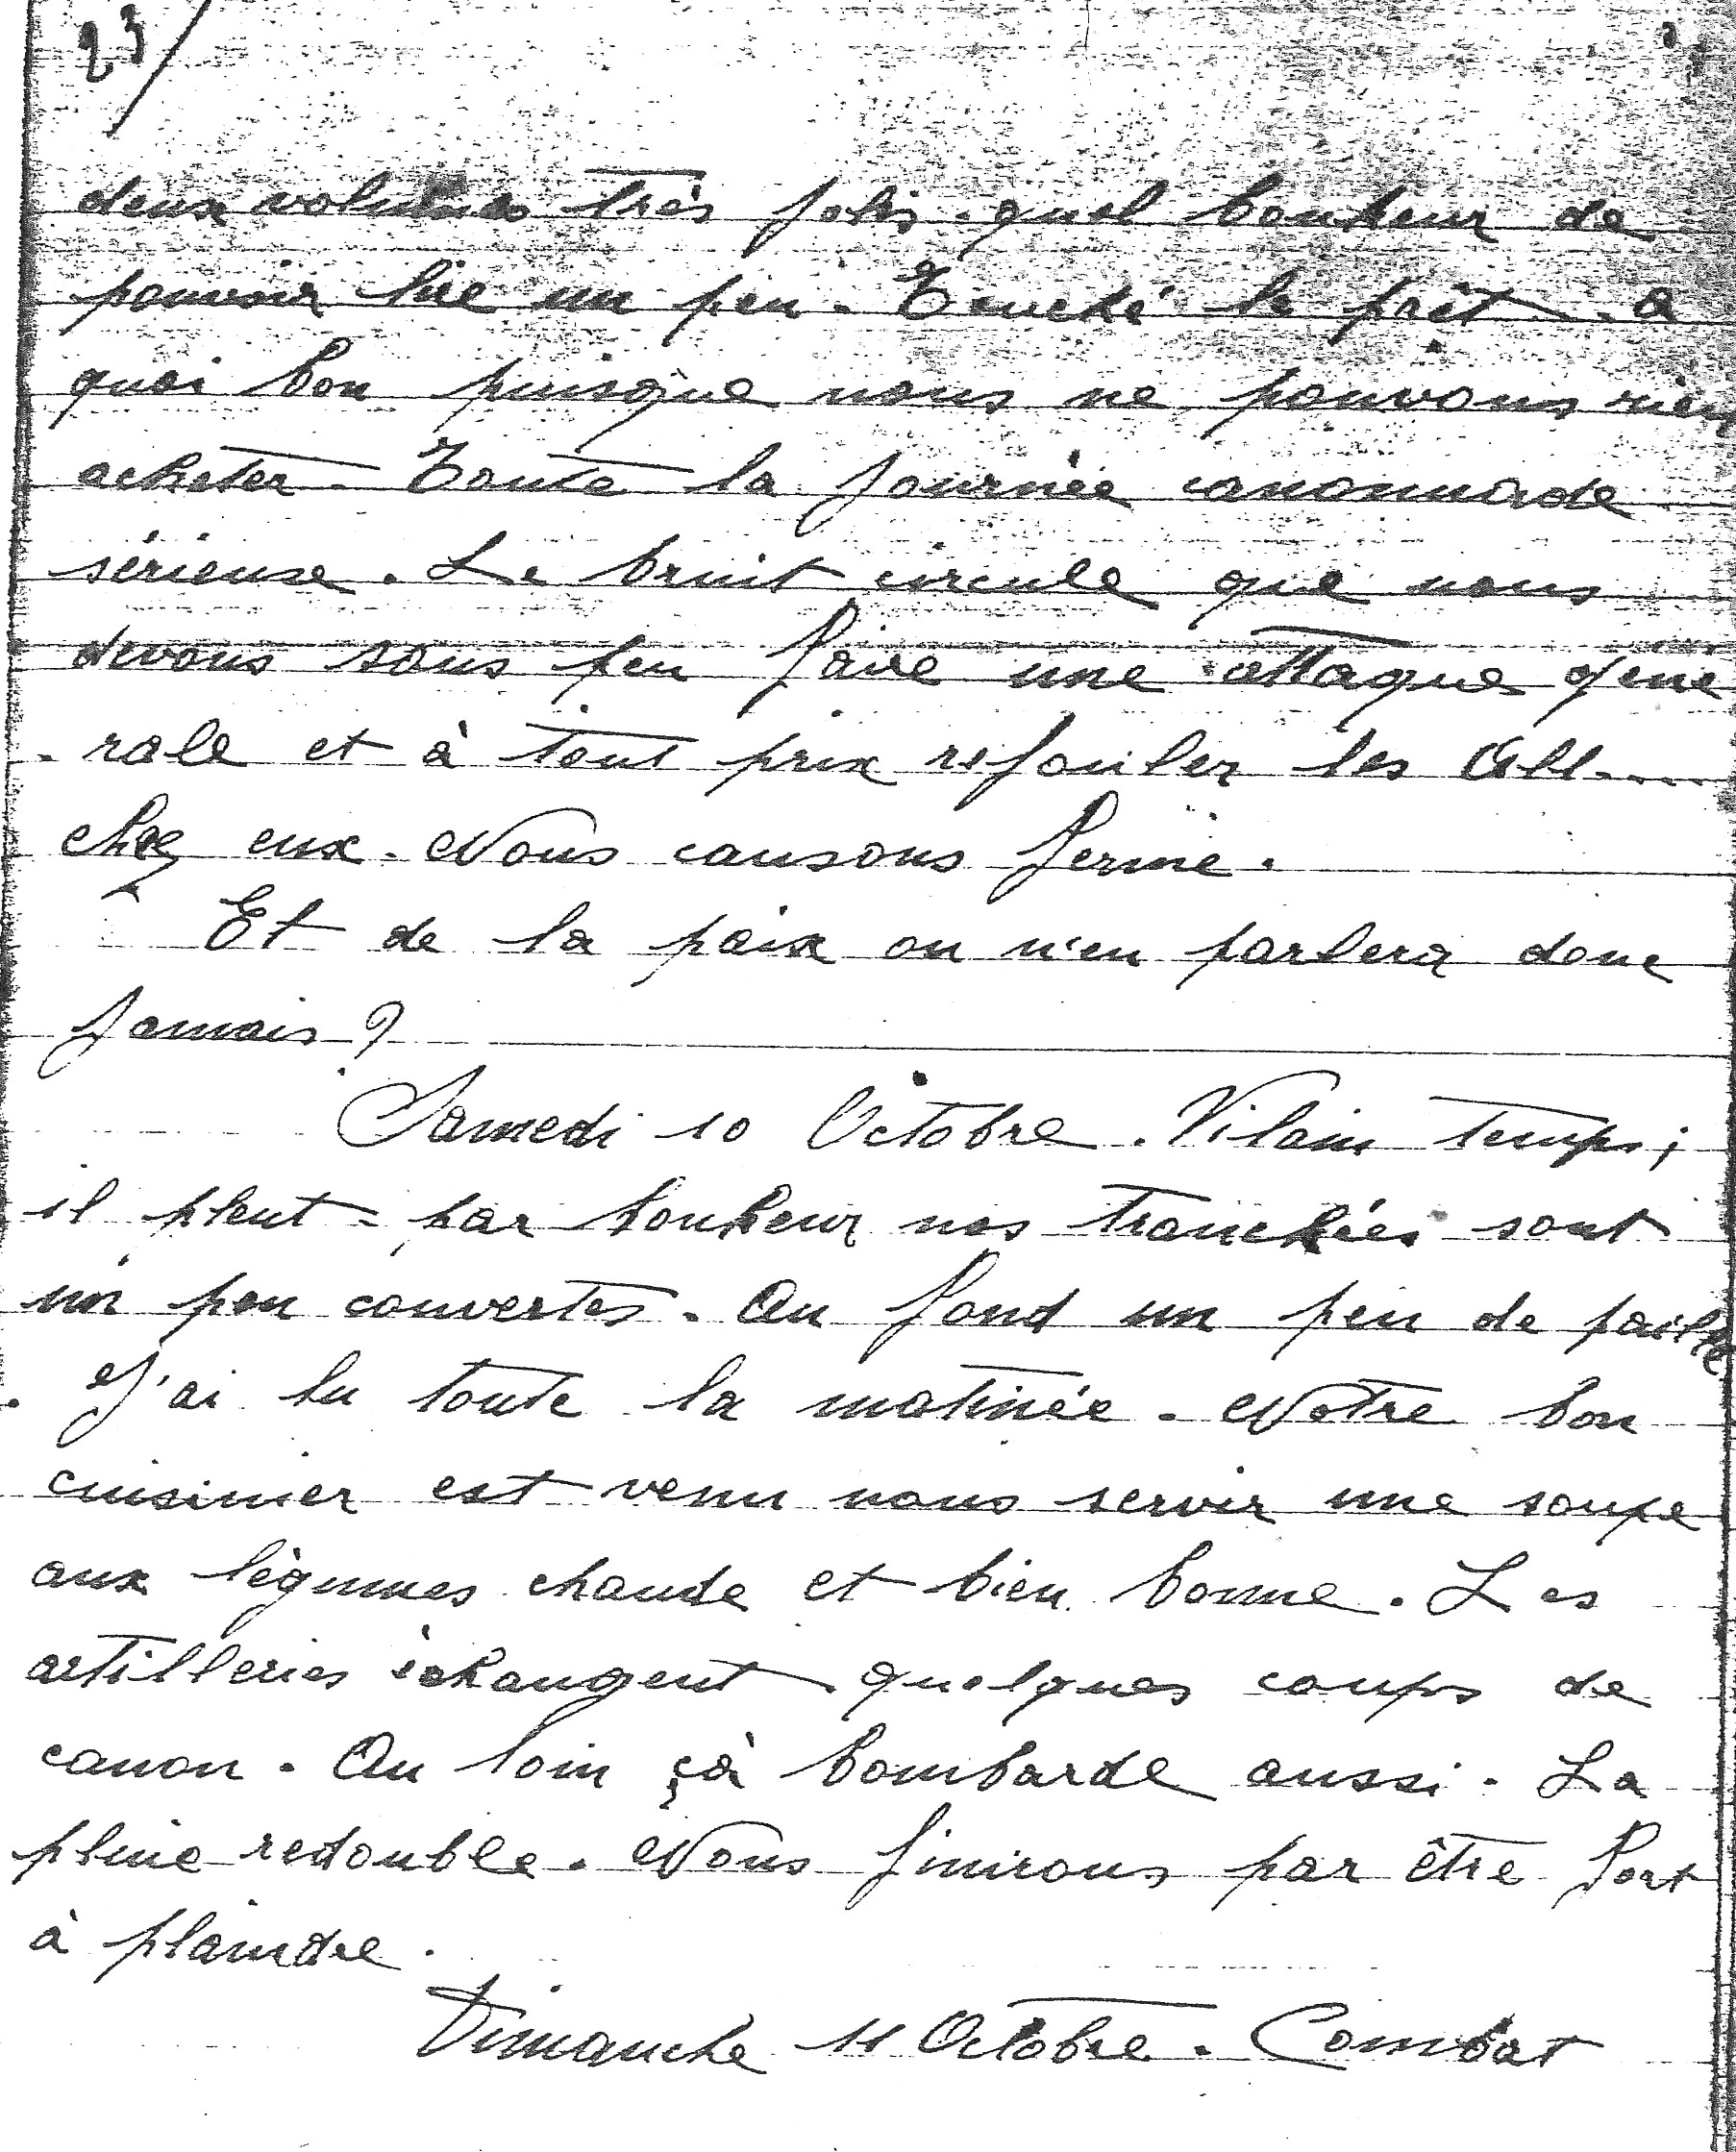 23/
deux volumes très jolis. quel bonheur de
pouvoir lire un peu. Touché le prêt. A
quoi bon puisque nous ne pouvons rien
acheter. Toute la journée canonnade
sérieuse. Le bruit circule que nous
devons sous peu faire une attaque géné
-rale et à tout prix refouler les All....
chez eux. Nous causons ferme.
Et de la paix on n'en parlera donc
jamais ?
Samedi 10 Octobre. Vilain temps ;
il pleut - par bonheur nos tranchées sont
un peu couvertes. Au fond un peu de paille
. J'ai lu toute la matinée. Notre bon
cuisinier est venu nous servir une soupe
aux légumes chaude et bien bonne. Les
artilleries échangent quelques coups de
canon. Au loin çà bombarde aussi. La
pluie redouble. Nous finirons par être fort
à plaindre.
Dimanche 11 Octobre. Combat